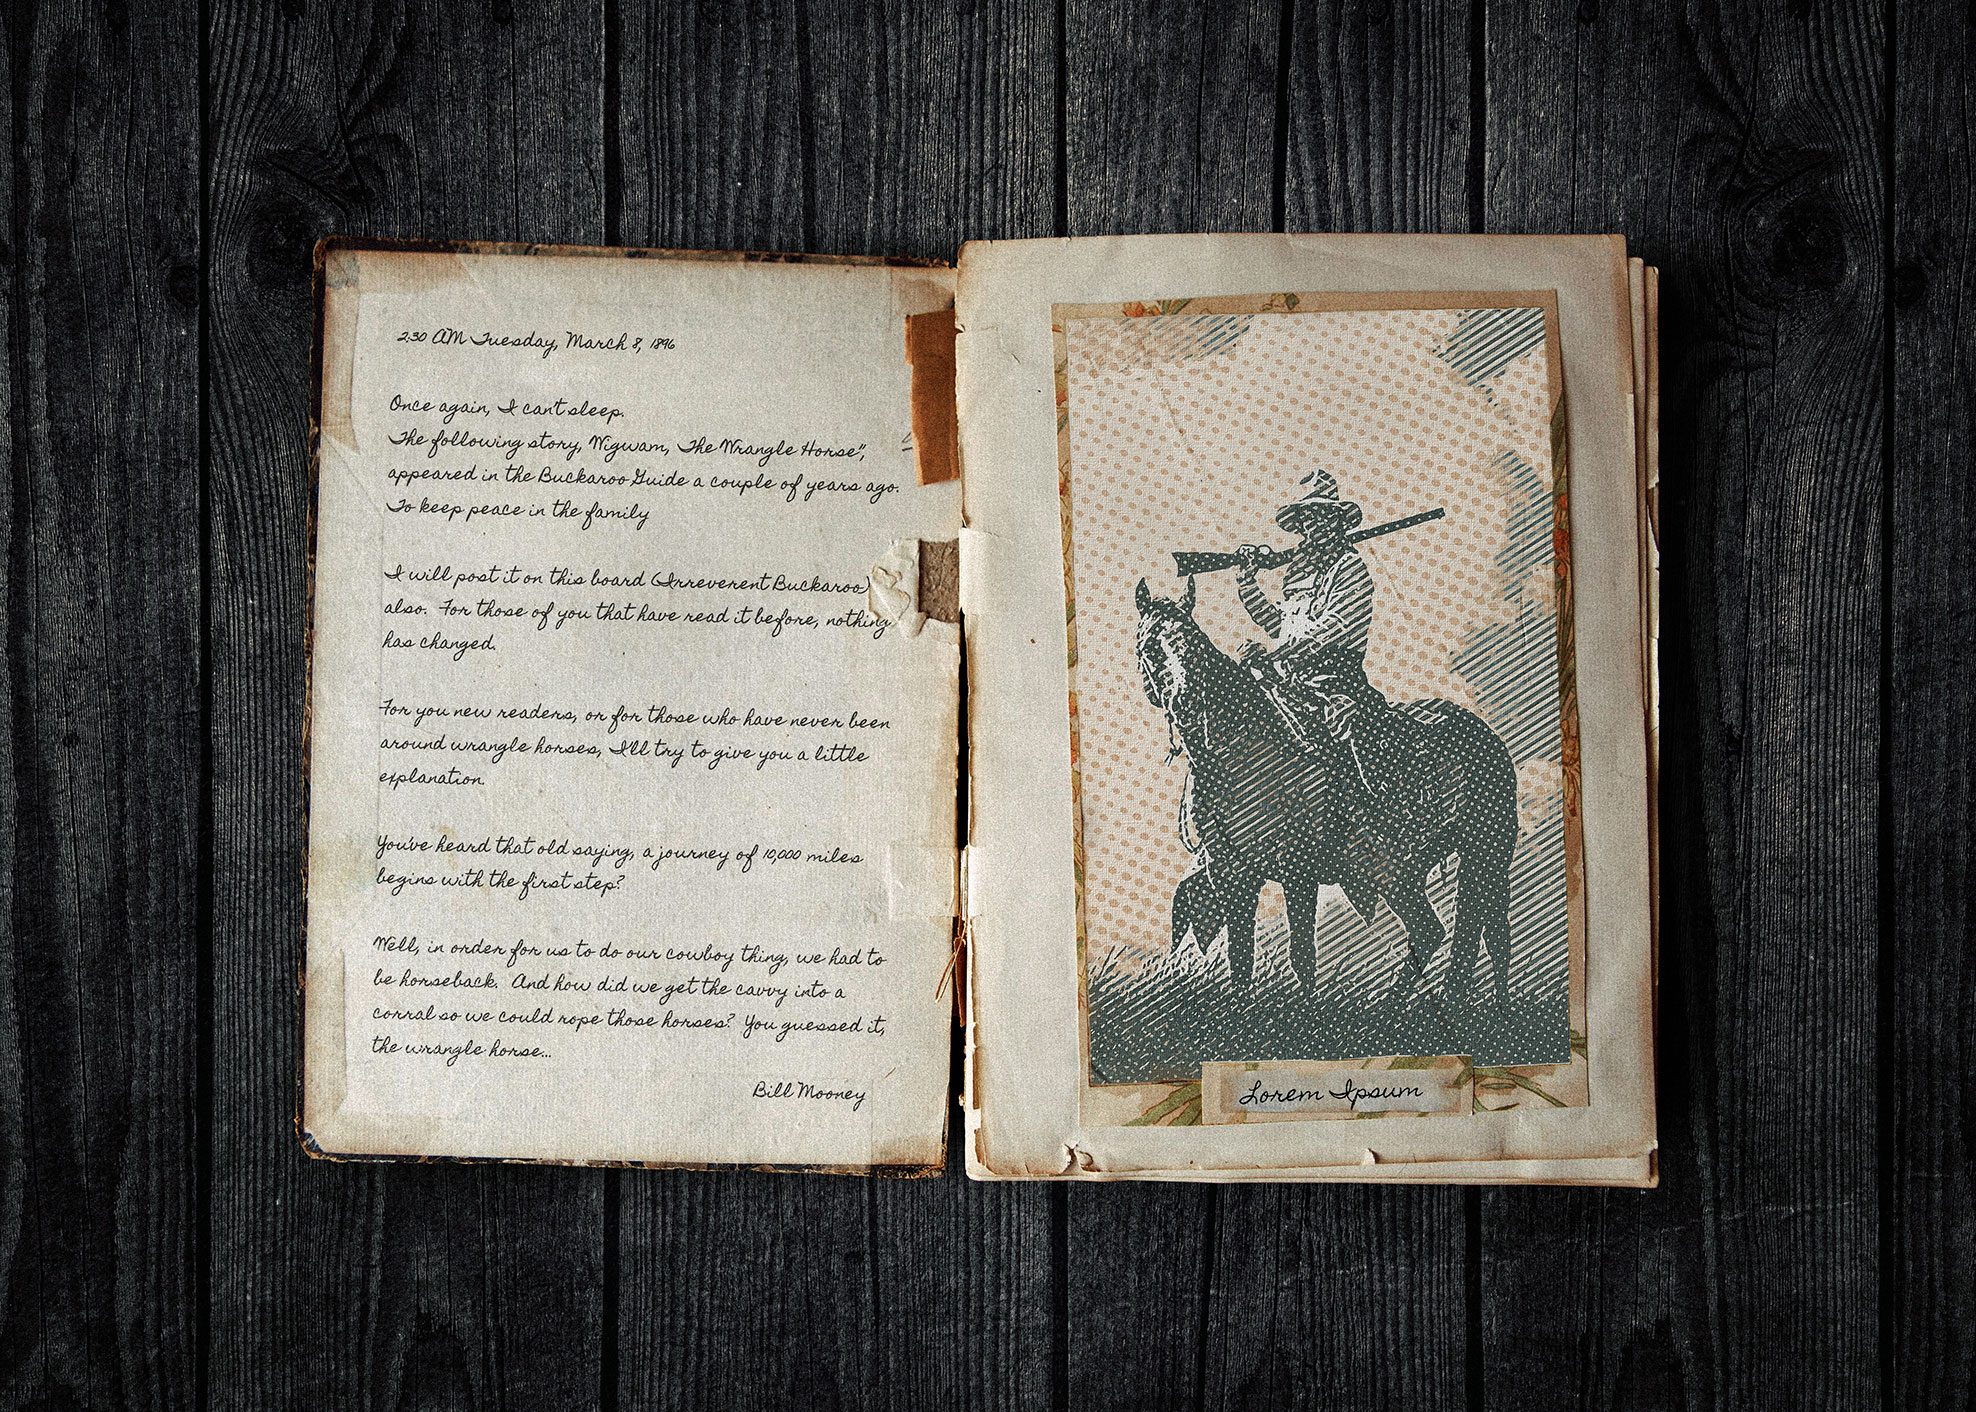 2:30 AM Tuesday, March 8, 1896
Once again, I can't sleep.
The following story, Wigwam, The Wrangle Horse",
appeared in the Buckaroo Guide a couple of years ago.
To keep peace in the family
I will post it on this board (Irreverent Buckaroo)
also. For those of you that have read it before, nothing
has changed.
For you new readers, or for those who have never been
around wrangle horses, I'll try to give you a little
explanation.
You've heard that old saying, a journey of 10,000 miles
begins with the first step?
Well, in order for us to do our cowboy thing, we had to
be horseback. And how did we get the cavvy into a
corral so we could rope those horses? You guessed it,
the wrangle horse...
Bill Mooney
Lorem Ipsum